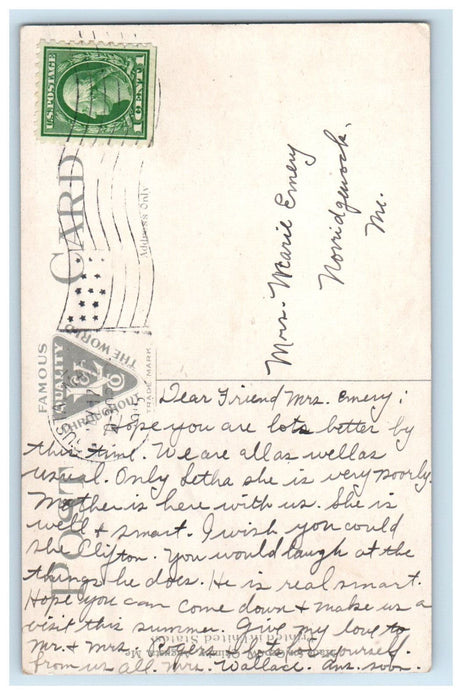 U.S. POSTAGE
1 CENT 1
POST CARD
Address Only
FAMOUS
QUALITY
THROUGHOUT
THE WORLD
TRADE MARK
Mrs. Marie Emery
Norridgewock,
Me.
Dear Friend Mrs. Emery;
Hope you are lots better by
this time. We are all as well as
usual. Only Letha she is very poorly.
Mother is here with us. She is
well & smart. I wish you could
she Clifton. You would laugh at the
things he does. He is real smart.
Hope you can come down & make us a
visit this summer. Give my love to
Mr. & Mrs. Rogers & lots for yourself.
from us all. Mrs. Wallace. Ans. soon.
Printed in United States